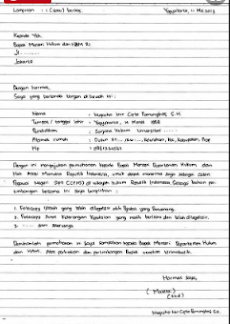 Lampiran : 1 (satu) berkas Yogyakarta, 11 Mei 2013
Kepada Yth.
Bapak Menteri Hukum dan HAM RI
Jl. ........
Jakarta
Dengan hormat,
Saya yang bertanda tangan di bawah ini :
Nama : Nugroho Tari Cipta Pamungkas, S.H.
Tempat / tanggal lahir : Yogyakarta, 14 Maret
Pendidikan : Sarjana Hukum Universitas
Alamat rumah : Dusun
Hp :
Dengan ini mengajukan permohonan kepada Bapak Menteri Departemen Hukum dan
Hak Asasi Manusia Republik Indonesia, untuk dapat menerima saya sebagai calon
Pegawai Negeri Sipil (CPNS) di wilayah hukum Republik Indonesia. Sebagai bahan
pertimbangan bersama ini saya lampirkan :
1. Fotocopy Ijazah yang telah dilegalisir oleh Pejabat yang berwenang.
2. Fotocopy Surat Keterangan yang masih berlaku dan telah dilegalisir.
3. ..... dan seterusnya.
Demikianlah permohonan ini saya sampaikan kepada Bapak Menteri Departemen Hukum
dan HAM. Atas perhatian dan Bapak
Hormat saya,
(Materai)
Nugroho Tari Cipta Pamungkas, S.H.